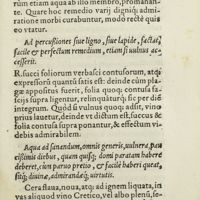 rum etiam aqua ab illo membro, promanan-
te. Quare hoc remedio varij digniq; admi-
ratione morbi curabuntur, modo rectè quis
eo vtatur.
Ad percussiones siue ligno, siue lapide, factas,
facile & perfectum remedium, etiam si vulnus ac-
cesserit.
R. succi foliorum verbasci contusorum, atq;
expressi quantũ satis est: deinde cum pla-
gæ appositus fuerit, folia quoq; contusa fa-
scijs supra ligentur, relinquāturq; sic per diē
integrum. Quòd si vulnus quoq; adsit, vino
prius lauetur, deinde vt dictum est, succus &
folia contusa supra ponantur, & effectum vi-
debis admirabilem.
Aqua ad sanandum, omnis generis, vulnera, pau-
cißimis diebus, quam quisq; domi paratam habere
deberet, cùm paruo pretio, & facilè haberi queat,
sitq; diuinæ, admirandæq, virtutis.
Cera flaua, noua, atq; ad ignem liquata, in
vas aliquod vino Cretico, vel albo plenũ, se-